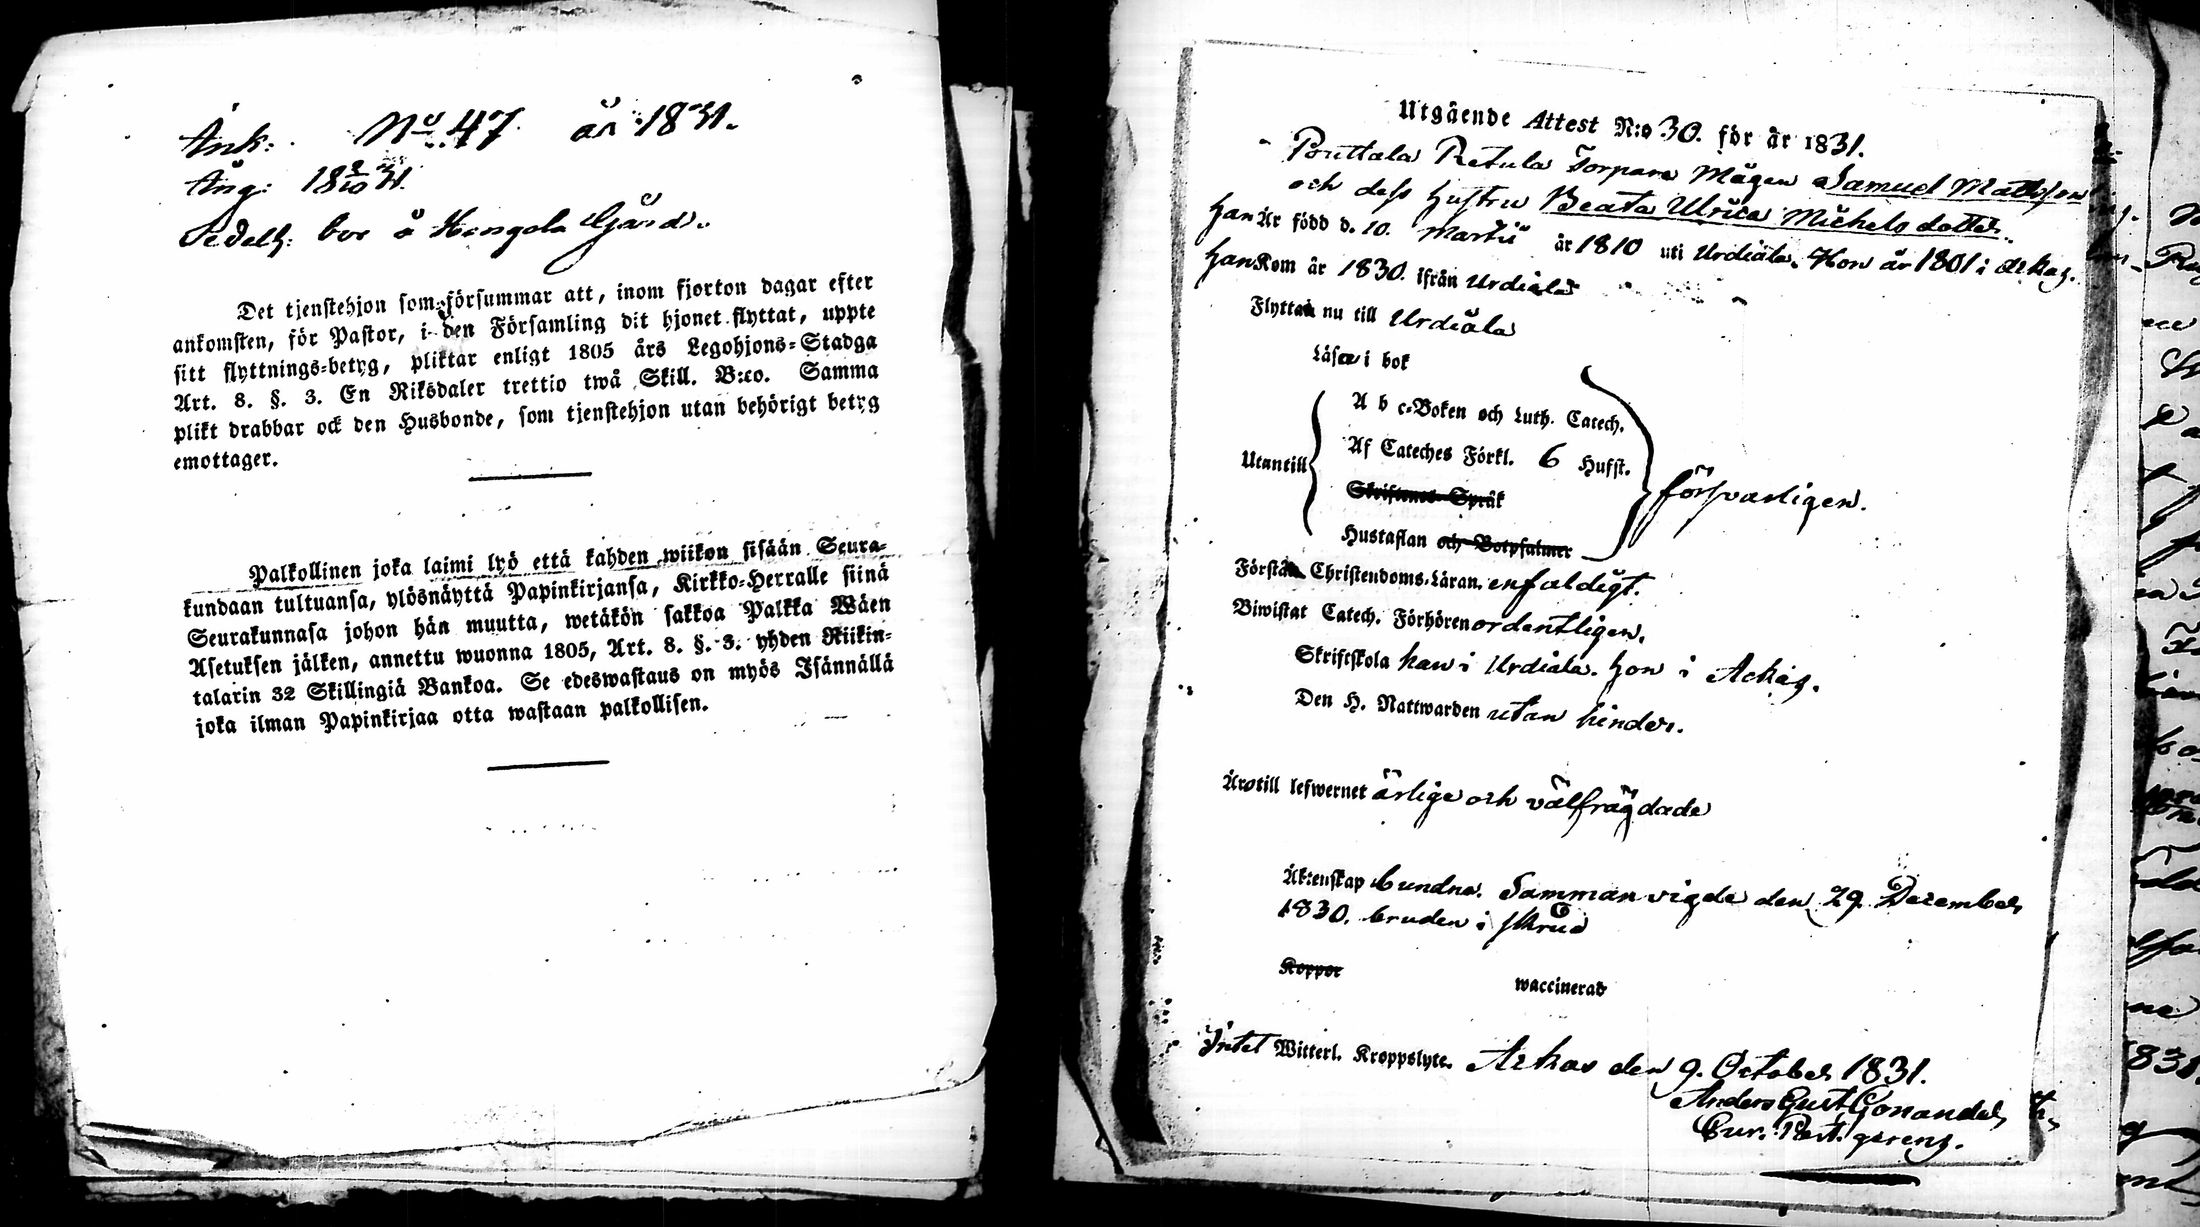 Ank: No 47 år 1831.
Ång: 18 9/10 31.
Sedelh: bor å Hongola Gård.
Det tjenstehjon som försummar att, inom fjorton dagar efter
ankomsten, för Pastor, i den Församling dit hjonet flyttat, uppte
sitt flyttnings-betyg, pliktar enligt 1805 års Legohjons-Stadga
Art. 8. §. 3. En Riksdaler trettio twå Skill. B:co. Samma
plikt drabbar ock den Husbonde, som tjenstehjon utan behörigt betyg
emottager.
Palkollinen joka laimi lyö että kahden wiikon sisään Seura-
kundaan tultuansa, ylösnäyttä Papinkirjansa, Kirkko-Herralle siinä
Seurakunnasa johon hän muutta, wetäkön sakkoa Palkka Wäen
Asetuksen jälken, annettu wuonna 1805, Art. 8. §. 3. yhden Riikin-
talarin 32 Skillingiä Bankoa. Se edeswastaus on myös Isännällä
joka ilman Papinkirjaa otta wastaan palkollisen.
Utgående Attest N:o 30. för år 1831.
Pouttala Retula Torpare Mågen Samuel Mattsson
och dess hustru Beata Ulrica Michelsdotter.
han Är född d. 10. Martii år 1810 uti Urdiala. Hon år 1801 i Ackas.
han Kom år 1830. ifrån Urdiala
Flytta nu till Urdiala
Läsa i bok
A b c-Boken och Luth. Catech.
Utantill Af Cateches Förkl. 6 Hufst. försvarligen.
Skriftenes Språk
Hustaflan och Botpsalmer
Förstå Christendoms-Läran. enfaldigt.
Biwistat Catech. Förhören ordentligen.
Skriftskola han i Urdiala. hon i Ackas.
Den H. Nattwarden utan hinder.
Äro till lefwernet ärlige och välfrägdade
Äktenskap bundne. Sammanvigde den 29 December
1830. bruden i skrud
Koppor waccinerad
Intet Witterl. Kroppslyte. Ackas den 9. October 1831.
Anders Gust Gonander
Cur. Past. gerens.